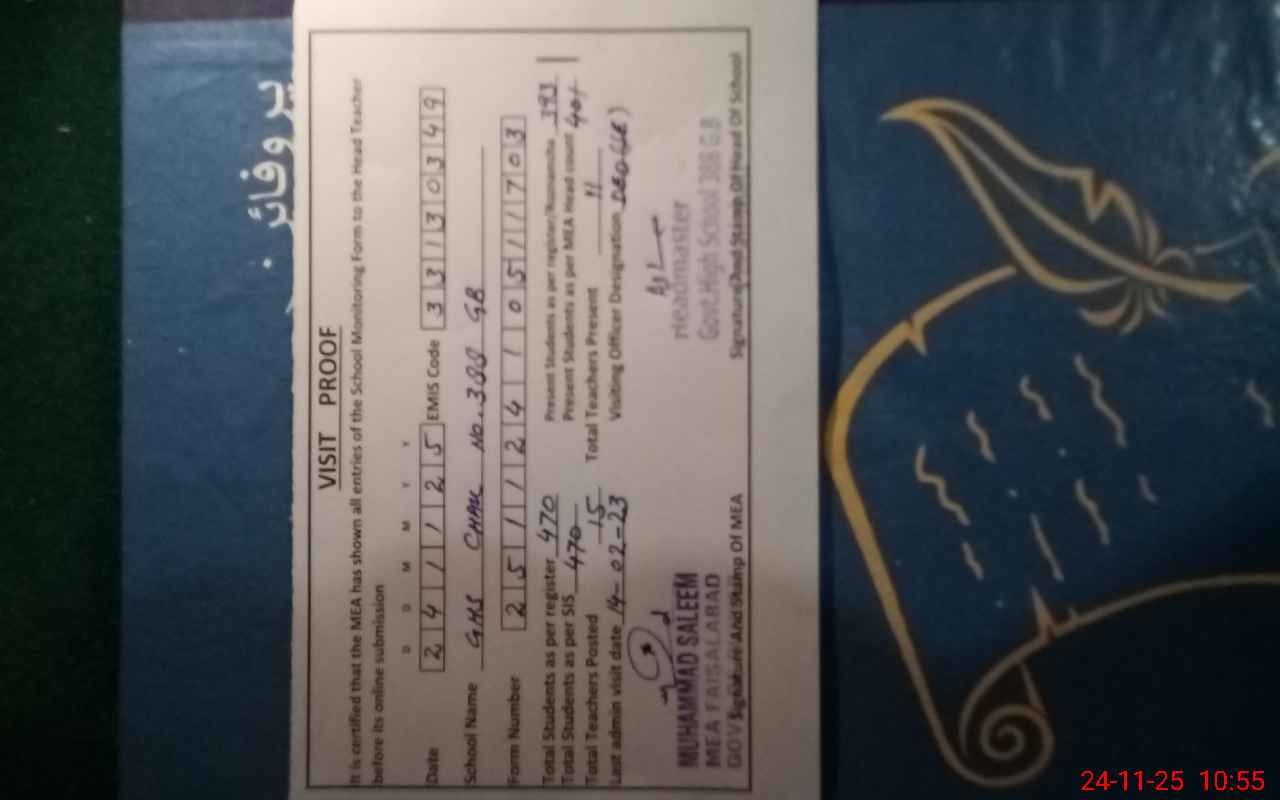 پروفائل
VISIT PROOF
It is certified that the MEA has shown all entries of the School Monitoring Form to the Head Teacher
before its online submission
D D M M Y Y
Date 2 4 1 1 2 5 EMIS Code 3 3 1 3 0 3 4 9
School Name GHS CHAK No. 388 GB
Form Number 2 5 1 1 2 4 1 1 0 5 1 1 7 0 3
Total Students as per register 470 Present Students as per register/Roznamcha 393
Total Students as per SIS 470 Present Students as per MEA Head count 401
Total Teachers Posted 15 Total Teachers Present 11
Last admin visit date 14-02-23 Visiting Officer Designation
MUHAMMAD SALEEM
MEA FAISALABAD
GOV
Headmaster
Govt. High School 388 G.B
Signature And Stamp Of MEA Signature And Stamp Of Head Of School
24-11-25 10:55